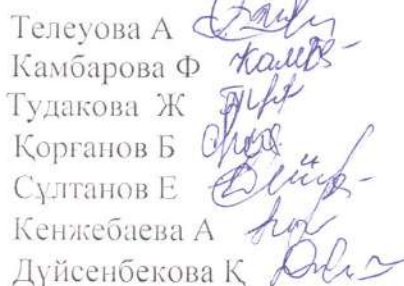 Телеуова А
Камбарова Ф
Тудакова Ж
Қорғанов Б
Сұлтанов Е
Кенжебаева А
Дүйсенбекова Қ